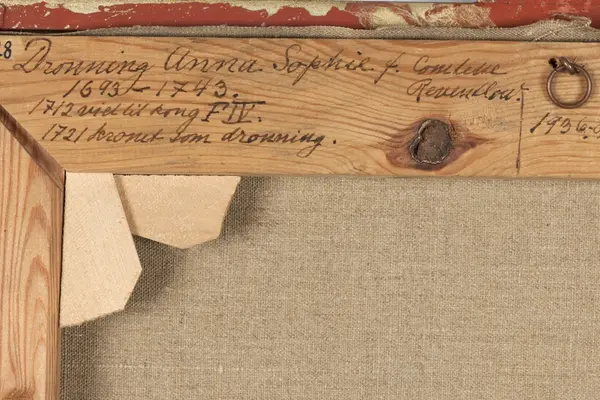 28
Dronning Anna Sophie f. Comtesse
Reventlou.
1693 - 1743.
1712 viet til kong F IV.
1721 kronet som dronning.